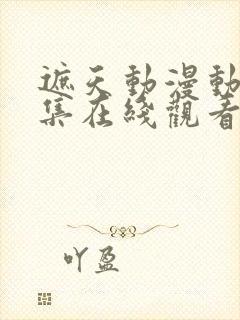 遮天動漫動
集在綫觀看
吖盈